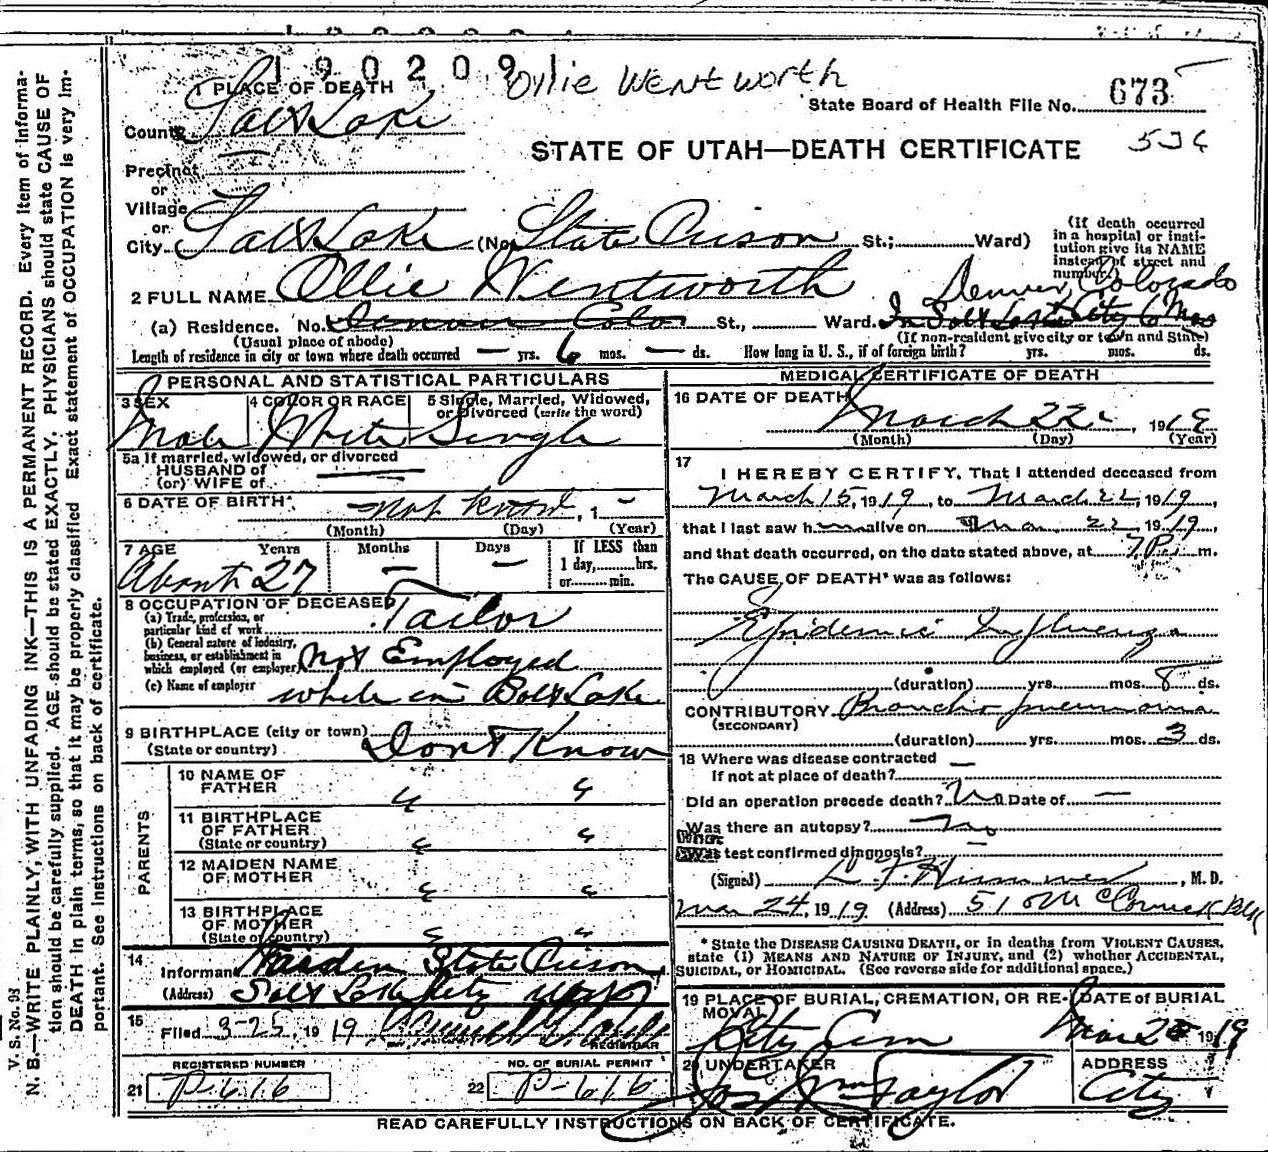 190209
Ollie Wentworth
1 PLACE OF DEATH
State Board of Health File No. 673
County Salt Lake
STATE OF UTAH—DEATH CERTIFICATE
Precinct
or
Village
or
City Salt Lake (No. State Prison St.; Ward)
(If death occurred in a hospital or institution give its NAME instead of street and number.)
2 FULL NAME Ollie Wentworth
Denver, Colorado
(a) Residence. No. Denver Colo St., Ward. In Salt Lake City 6 Mos
(Usual place of abode) (If non-resident give city or town and State)
Length of residence in city or town where death occurred — yrs. 6 mos. — ds. How long in U. S., if of foreign birth? yrs. mos. ds.
PERSONAL AND STATISTICAL PARTICULARS
3 SEX 4 COLOR OR RACE 5 Single, Married, Widowed, or Divorced (write the word)
Male White Single
5a If married, widowed, or divorced
HUSBAND of
(or) WIFE of
6 DATE OF BIRTH Not Know, 1 —
(Month) (Day) (Year)
7 AGE Years Months Days If LESS than 1 day, hrs. or min.
About 27 — —
8 OCCUPATION OF DECEASED
(a) Trade, profession, or particular kind of work Tailor
(b) General nature of industry, business, or establishment in which employed (or employer) Not Employed
(c) Name of employer while in Salt Lake
9 BIRTHPLACE (city or town)
(State or country) Dont Know
PARENTS
10 NAME OF FATHER " "
11 BIRTHPLACE OF FATHER (State or country) " "
12 MAIDEN NAME OF MOTHER " "
13 BIRTHPLACE OF MOTHER (State or country) " "
14 Informant Warden State Prison
(Address) Salt Lake City Utah
15 Filed 3-25, 1919
REGISTRAR
REGISTERED NUMBER NO. OF BURIAL PERMIT
21 P-616 22 P-616
MEDICAL CERTIFICATE OF DEATH
16 DATE OF DEATH
March 22, 1919
(Month) (Day) (Year)
17 I HEREBY CERTIFY, That I attended deceased from
March 15, 1919, to March 22, 1919,
that I last saw him alive on Mar 22 1919,
and that death occurred, on the date stated above, at 7 P. m.
The CAUSE OF DEATH* was as follows:
Epidemic Influenza
(duration) yrs. mos. 8 ds.
CONTRIBUTORY Broncho pneumonia
(SECONDARY)
(duration) yrs. mos. 3 ds.
18 Where was disease contracted —
If not at place of death?
Did an operation precede death? No Date of —
Was there an autopsy? No
What test confirmed diagnosis? —
(Signed) L. F. Hummer, M. D.
Mar 24, 1919 (Address) 510 McCornick Blk
* State the DISEASE CAUSING DEATH, or in deaths from VIOLENT CAUSES, state (1) MEANS AND NATURE OF INJURY, and (2) whether ACCIDENTAL, SUICIDAL, or HOMICIDAL. (See reverse side for additional space.)
19 PLACE OF BURIAL, CREMATION, OR REMOVAL DATE of BURIAL
City Cem Mar 25 1919
20 UNDERTAKER ADDRESS
Jos Wm Taylor City
READ CAREFULLY INSTRUCTIONS ON BACK OF CERTIFICATE.
V. S. No. 98
N. B.—WRITE PLAINLY, WITH UNFADING INK—THIS IS A PERMANENT RECORD. Every item of information should be carefully supplied. AGE should be stated EXACTLY. PHYSICIANS should state CAUSE OF DEATH in plain terms, so that it may be properly classified Exact statement of OCCUPATION is very important. See instructions on back of certificate.